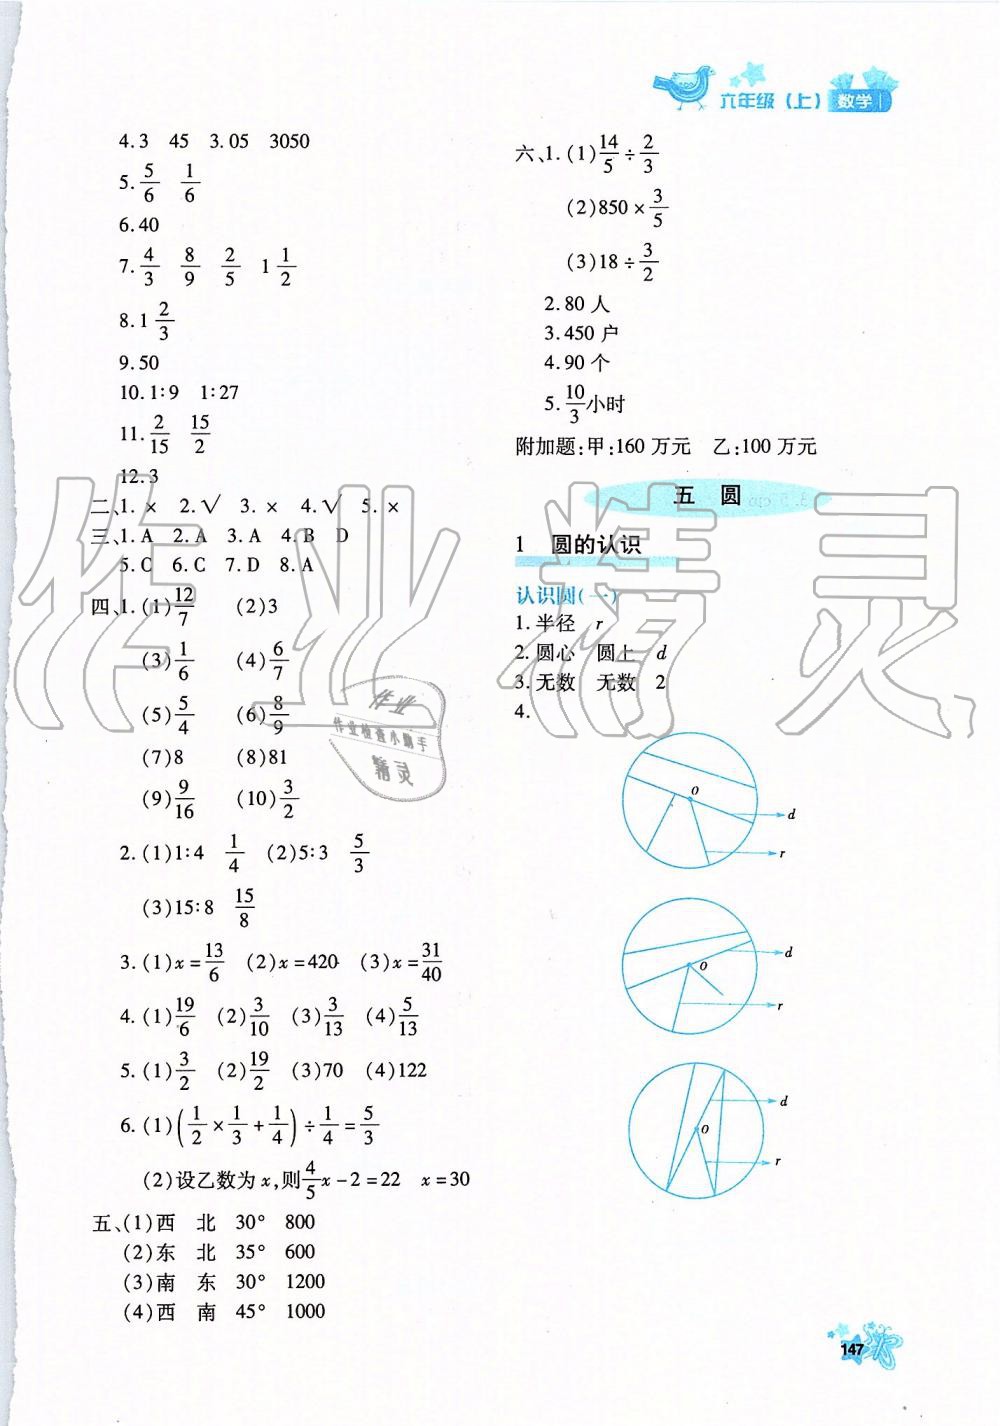 六年级(上) 数学
4.3 45 3.05 3050
5. 5/6 1/6
6.40
7. 4/3 8/9 2/5 1 1/2
8.1 2/3
9.50
10.1∶9 1∶27
11. 2/15 15/2
12.3
二、1.× 2.√ 3.× 4.√ 5.×
三、1.A 2.A 3.A 4.B D
5.C 6.C 7.D 8.A
四、1.(1)12/7 (2)3
(3)1/6 (4)6/7
(5)5/4 (6)8/9
(7)8 (8)81
(9)9/16 (10)3/2
2.(1)1∶4 1/4 (2)5∶3 5/3
(3)15∶8 15/8
3.(1)x=13/6 (2)x=420 (3)x=31/40
4.(1)19/6 (2)3/10 (3)3/13 (4)5/13
5.(1)3/2 (2)19/2 (3)70 (4)122
6.(1)(1/2×1/3+1/4)÷1/4=5/3
(2)设乙数为x,则4/5x-2=22 x=30
五、(1)西 北 30° 800
(2)东 北 35° 600
(3)南 东 30° 1200
(4)西 南 45° 1000
六、1.(1)14/5÷2/3
(2)850×3/5
(3)18÷3/2
2.80人
3.450户
4.90个
5.10/3小时
附加题:甲:160万元 乙:100万元
五 圆
1 圆的认识
认识圆(一)
1.半径 r
2.圆心 圆上 d
3.无数 无数 2
4.
O
d
r
O
d
r
O
d
r
作业精灵
作业
作业检查小助手
精灵
147